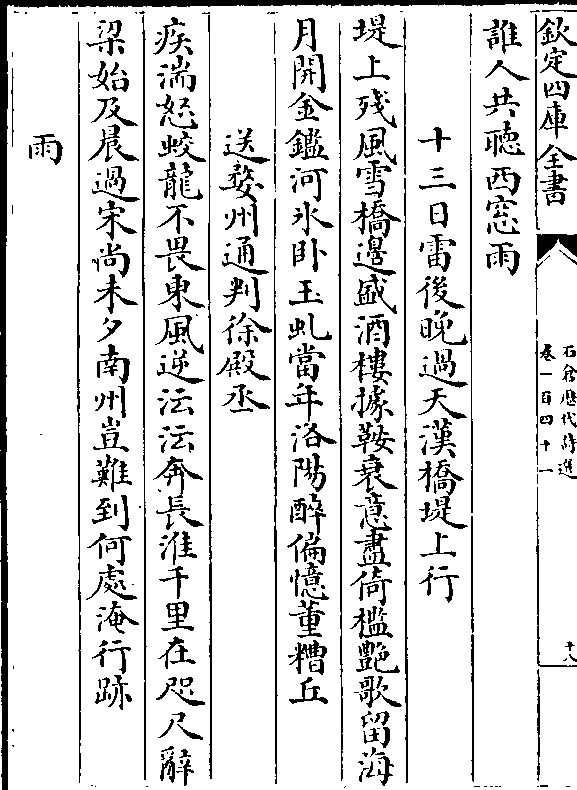 欽定四庫全書
石倉歷代詩選
卷一百四十一
十八
誰人共聴西窓雨
十三日雷後晚過天漢橋堤上行
堤上殘風雪橋邊盛酒樓據鞍衰意盡倚檻艶歌留海
月開金鑑河氷卧玉虬當年洛陽醉偏憶董糟丘
送婺州通判徐殿丞
疾湍怒蛟龍不畏東風逆沄沄奔長淮千里在咫尺辭
梁始及晨過宋尚未夕南州豈難到何處淹行跡
雨